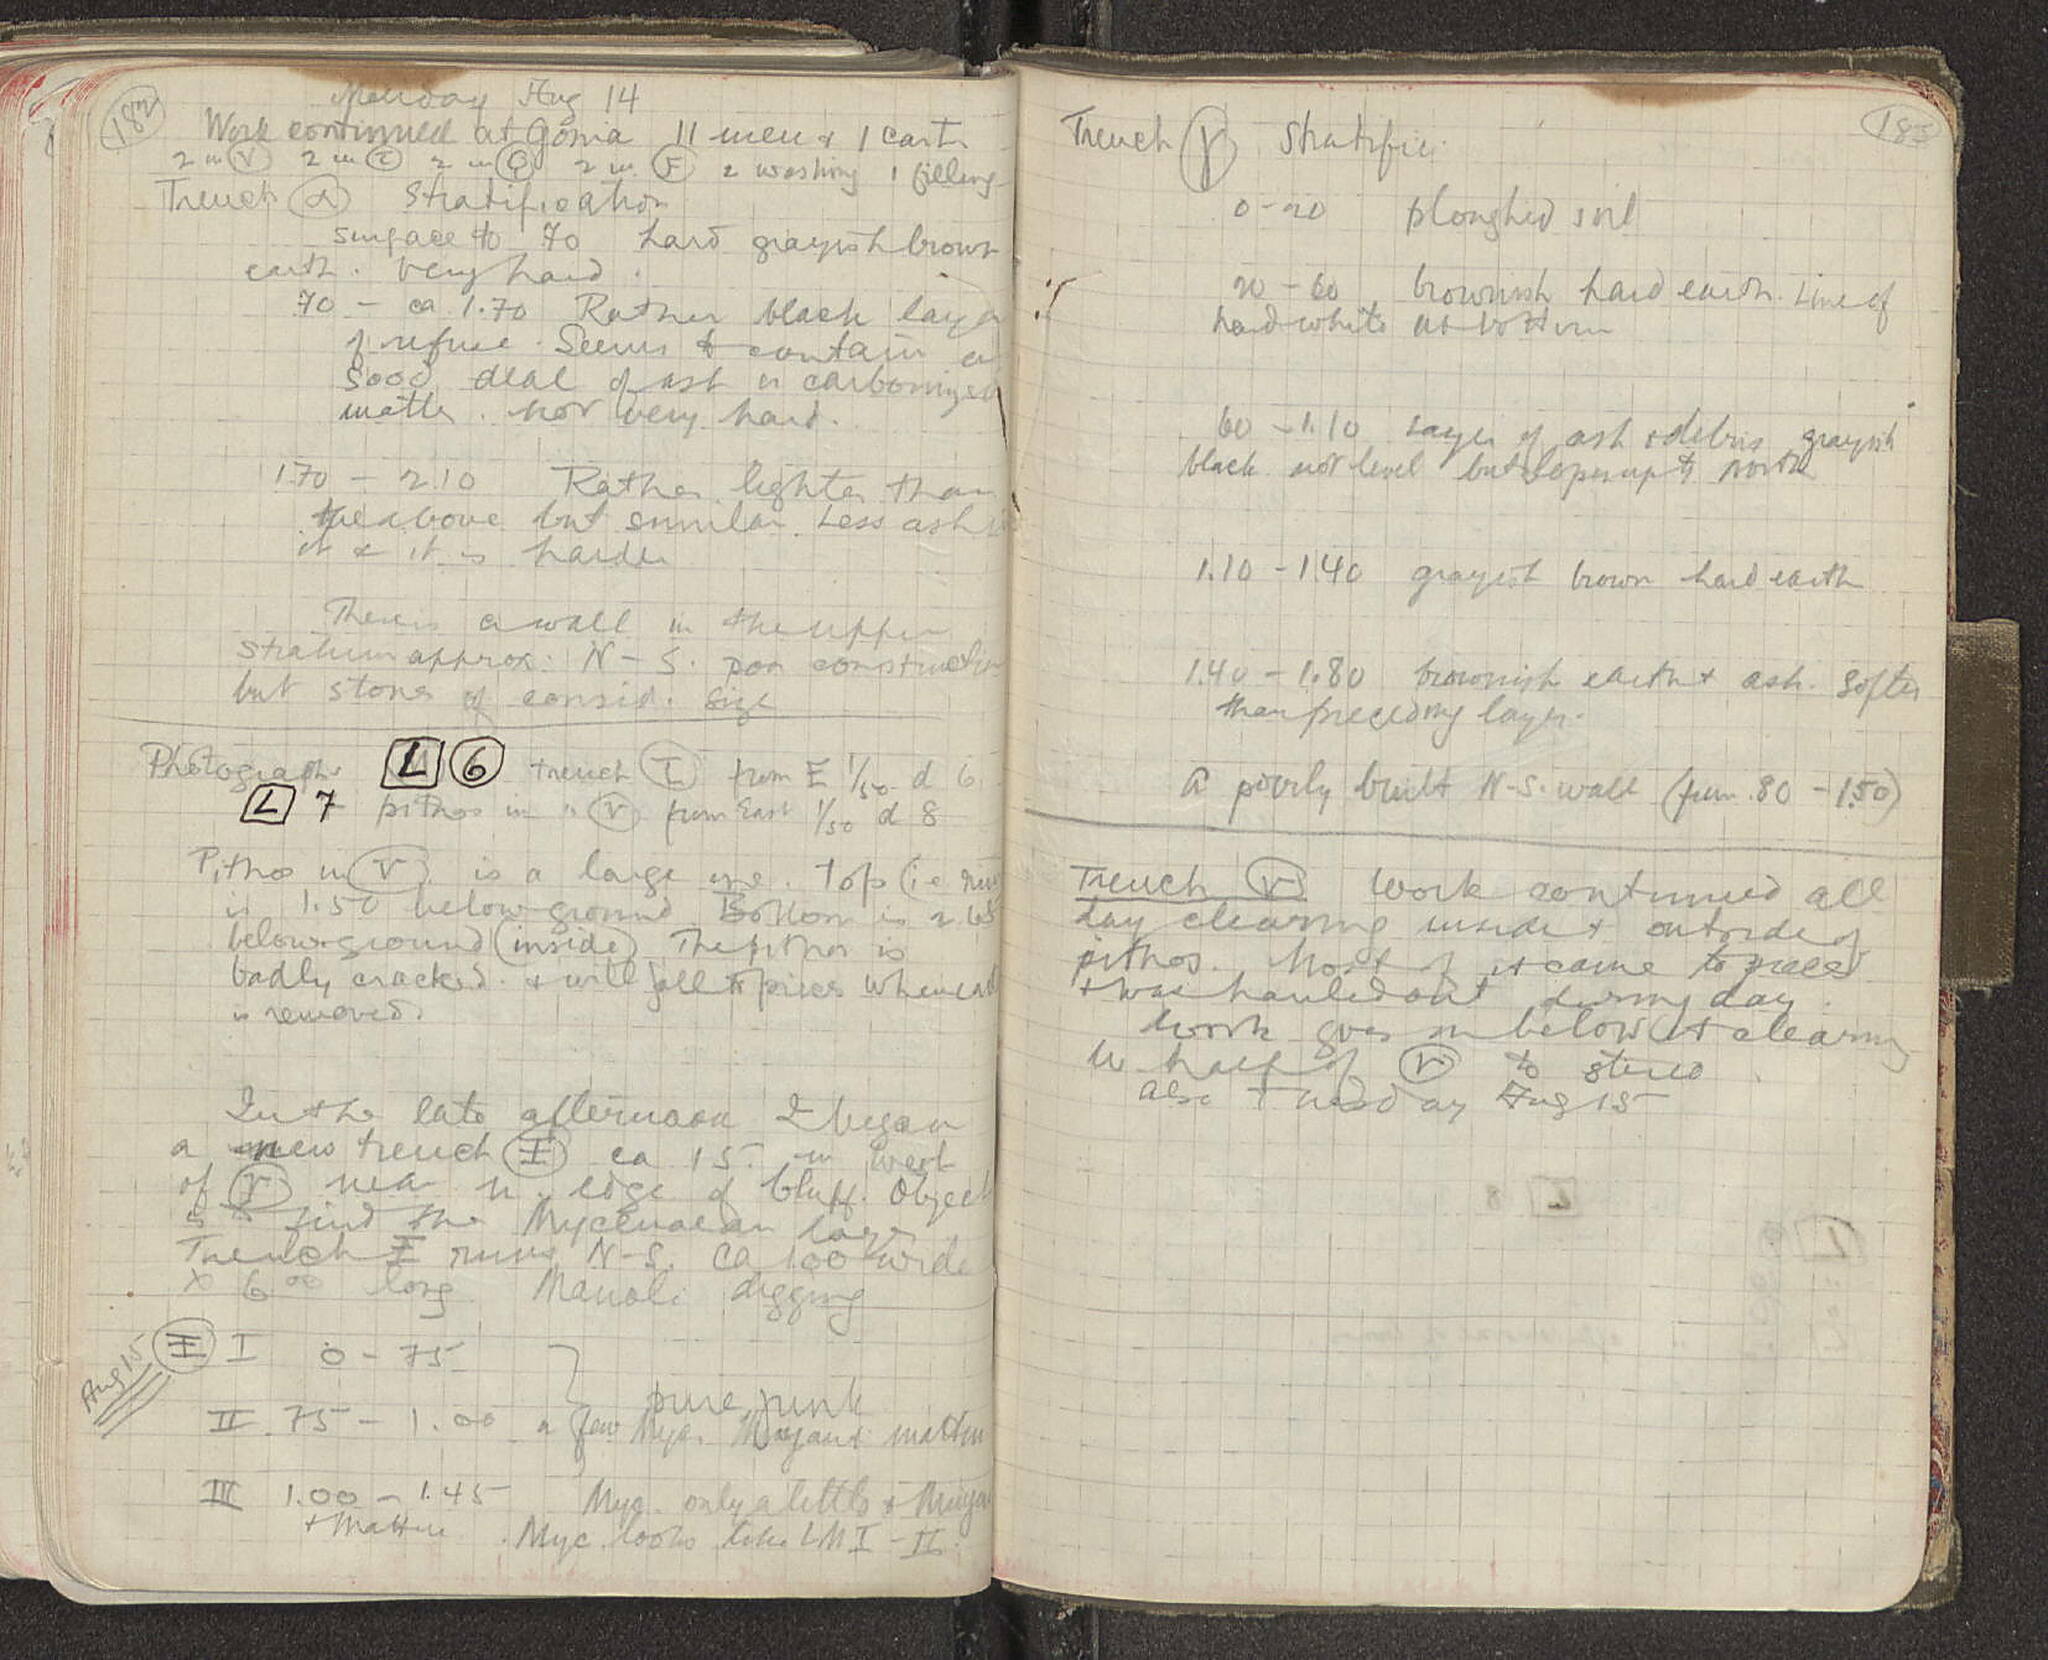 182
Monday Aug 14
Work continued at Gonia 11 men & 1 cart
2 in V 2 in I 2 in 2 in F 2 washing 1 filling
Trench α Stratification
surface to 70 hard grayish brown
earth. very hard.
70 – ca 1.70 Rather black layer
of refuse. Seems to contain a
good deal of ash or carbonized
matter. not very hard.
1.70 – 2.10 Rather lighter than
the above but similar. Less ash in
it & it is harder
There is a wall in the upper
stratum approx: N–S. poor construction
but stones of consid. size
Photographs L 6 trench I from E 1/50 d 6
L 7 pithos in " V from East 1/50 d 8
Pithos in V is a large one. Top (i.e. rim
is 1.50 below ground Bottom is 2.65
below ground (inside) The pithos is
badly cracked. & will fall to pieces when
is removed.
In the late afternoon I began
a new trench Ξ ca 15. m west
of near n. edge of bluff. Object
to find the Mycenaean layer
Trench Ξ runs N–S. ca 1.00 wide
x 6.00 long Manoli digging
Aug 15
Ξ I 0 – 75
pure junk
II 75 – 1.00 a few Myc. Minyan & mattm
III 1.00 – 1.45 Myc. only a little & Minyan
+ Mattm. Myc. looks like LM I – II.
183
Trench γ Stratific:
0–20 ploughed soil
20–60 brownish hard earth. Line of
hard white at bottom
60 – 1.10 Layer of ash & debris grayish
black not level but slopes up to north
1.10 – 1.40 grayish brown hard earth
1.40 – 1.80 brownish earth & ash. Softer
than preceding layer.
A poorly built N–S. wall (from .80 – 1.50)
Trench V Work continued all
day clearing inside & outside of
pithos. Most of it came to pieces
& was hauled out during day.
Work goes on below it & clearing
W half of V to stereo
also Tuesday Aug 15